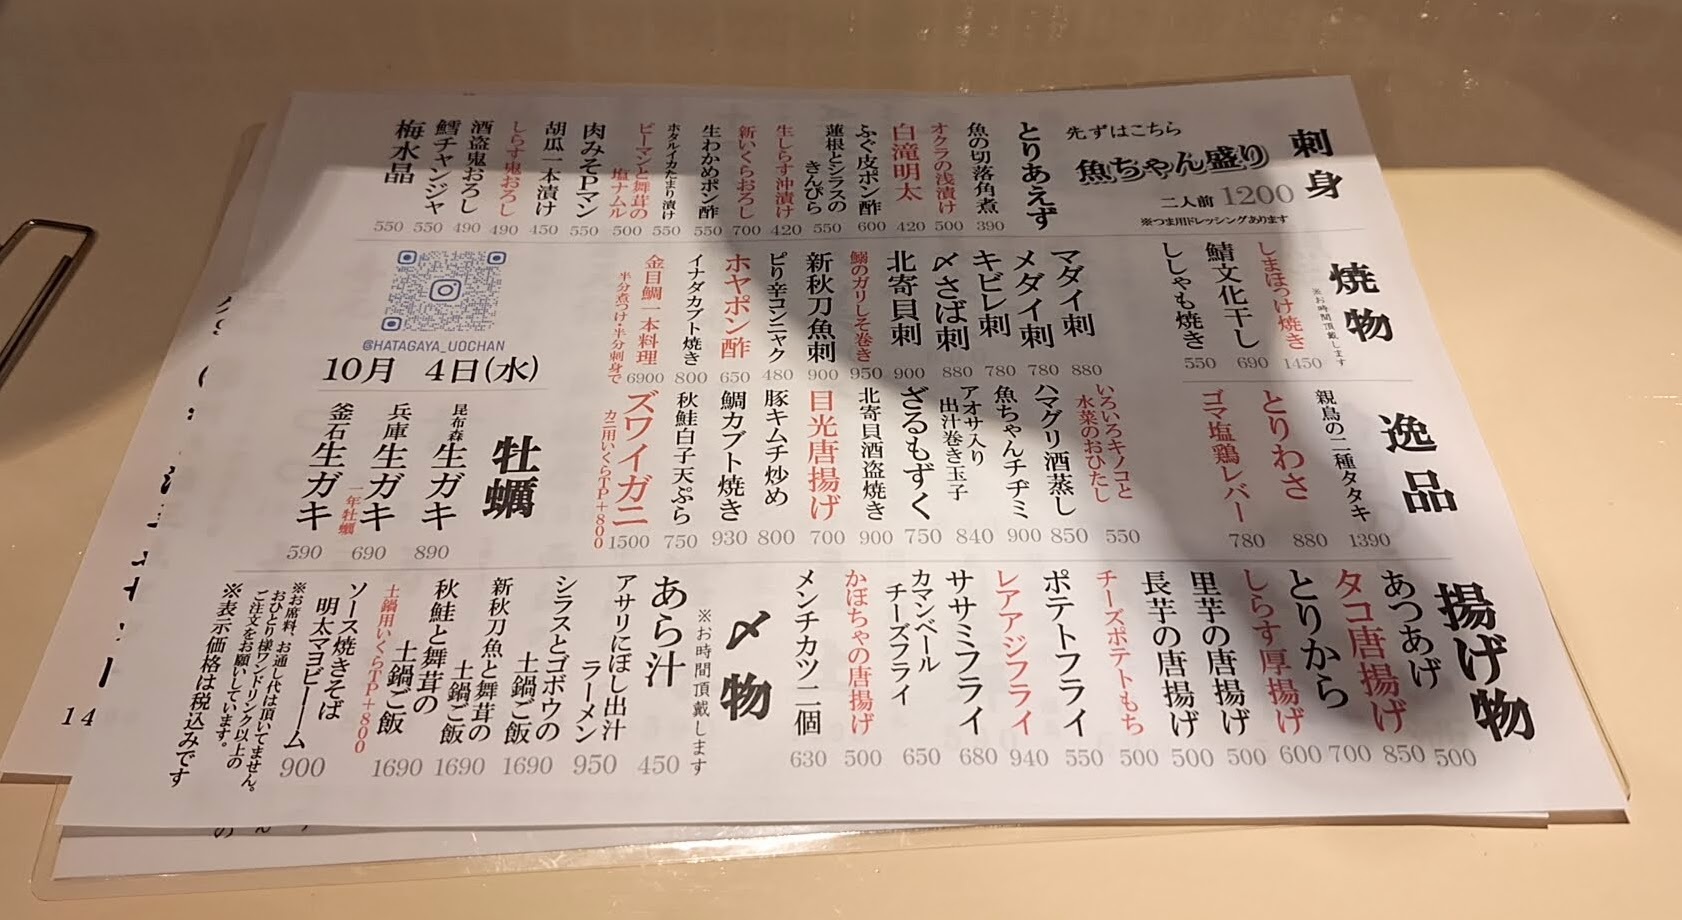 刺身
先ずはこちら
魚ちゃん盛り
二人前 1200
※つま用ドレッシングあります
とりあえず
魚の切落角煮 390
オクラの浅漬け 500
白滝明太 420
ふぐ皮ポン酢 600
蓮根とシラスの
きんぴら 550
生しらす沖漬け 420
新いくらおろし 700
生わかめポン酢 550
ホタルイカたまり漬け 550
ピーマンと舞茸の
塩ナムル 500
肉みそPマン 550
胡瓜一本漬け 450
しらす鬼おろし 490
酒盗鬼おろし 490
鱈チャンジャ 550
梅水晶 550
焼物
※お時間頂戴します
しまほっけ焼き 1450
鯖文化干し 690
ししゃも焼き 550
マダイ刺 880
メダイ刺 780
キビレ刺 780
〆さば刺 880
北寄貝刺 900
鰯のガリしそ巻き 950
新秋刀魚刺 900
ピリ辛コンニャク 480
ホヤポン酢 650
イナダカブト焼き 800
金目鯛一本料理 6900
半分煮つけ・半分刺身で
@HATAGAYA_UOCHAN
10月 4日(水)
逸品
親鳥の二種タタキ 1390
とりわさ 880
ゴマ塩鶏レバー 780
いろいろキノコと
水菜のおひたし 550
ハマグリ酒蒸し 850
魚ちゃんチヂミ 900
アオサ入り
出汁巻き玉子 840
ざるもずく 750
北寄貝酒盗焼き 900
目光唐揚げ 700
豚キムチ炒め 800
鯛カブト焼き 930
秋鮭白子天ぷら 750
ズワイガニ 1500
カニ用いくらTP+800
牡蠣
昆布森生ガキ 890
兵庫生ガキ 690
一年牡蠣
釜石生ガキ 590
揚げ物
あつあげ 500
タコ唐揚げ 850
とりから 700
しらす厚揚げ 600
里芋の唐揚げ 500
長芋の唐揚げ 500
チーズポテトもち 500
ポテトフライ 550
レアアジフライ 940
ササミフライ 680
カマンベール
チーズフライ 650
かぼちゃの唐揚げ 500
メンチカツ二個 630
〆物
※お時間頂戴します
あら汁 450
アサリにぼし出汁
ラーメン 950
シラスとゴボウの
土鍋ご飯 1690
新秋刀魚と舞茸の
土鍋ご飯 1690
秋鮭と舞茸の
土鍋ご飯 1690
土鍋用いくらTP+800
ソース焼きそば
明太マヨビーーム 900
※お席料、お通し代は頂いてません。
おひとり様ワンドリンク以上の
ご注文をお願いしています。
※表示価格は税込みです
14